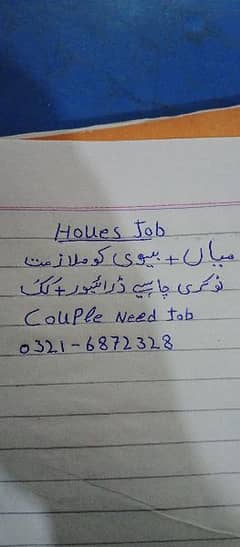 Houes Job
میاں + بیوی کو ملازمت
نوکری چاہیے ڈرائیور + کک
Couple Need Job
0321-6872328